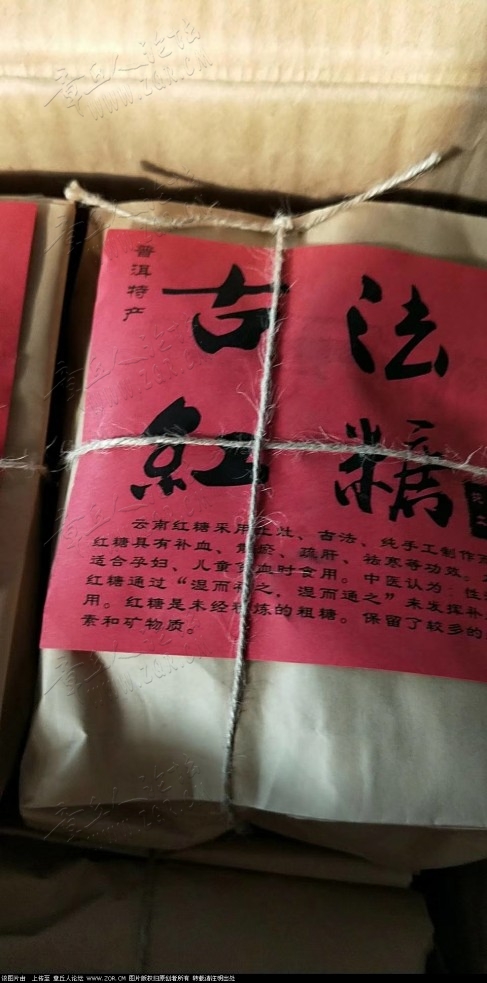 章丘人论坛
www.ZQR.CM
普洱特产
古法
红糖
云南红糖采用土灶、古法、纯手工制作
红糖具有补血、疏肝、祛寒等功效。
适合孕妇、儿童贫血时食用。中医认为:性
红糖通过“温而补之,温而通之”来发挥补
用。红糖是未经精炼的粗糖。保留了较多的
素和矿物质。
该图片由 上传至 章丘人论坛 www.ZQR.CM 图片版权归原创者所有 转载请注明出处